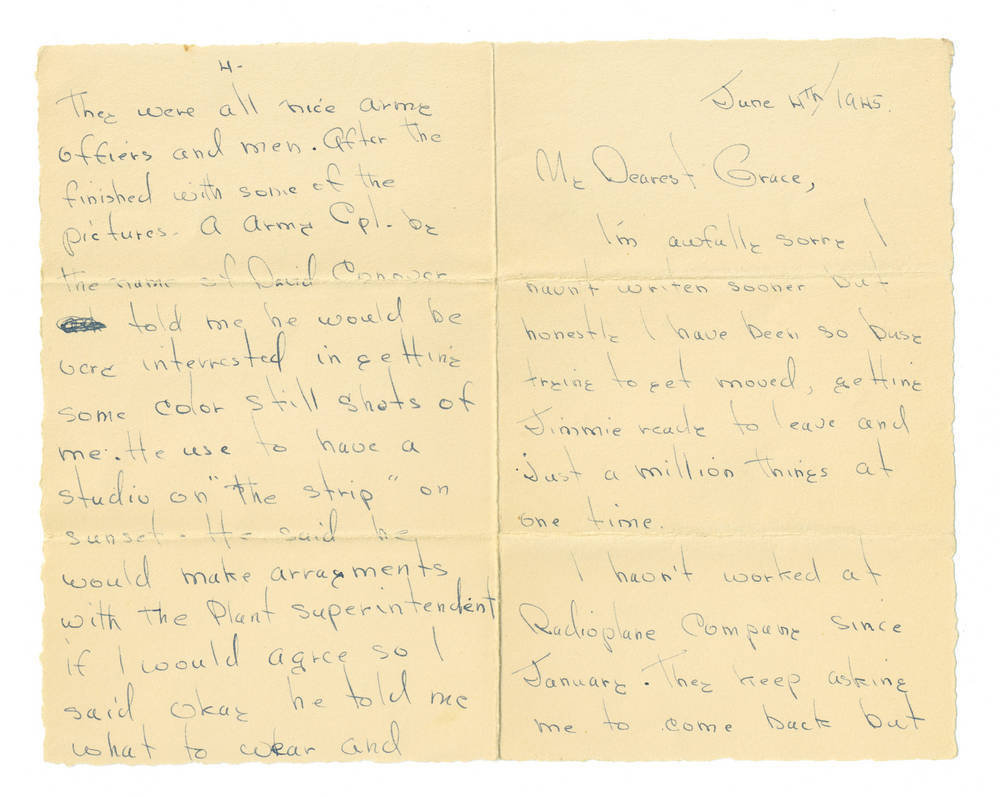 4-
They were all nice army
offiers and men. After the
finished with some of the
pictures. A army Cpl. by
the name of David Conover
told me he would be
very interrested in getting
some color still shots of
me. He use to have a
studio on "the strip" on
sunset. He said he
would make arragments
with the Plant superintendent
if I would agree so I
said okay he told me
what to wear and
June 4th/1945.
My Dearest Grace,
I'm awfully sorry I
havn't writen sooner but
honestly I have been so busy
trying to get moved, getting
Jimmie ready to leave and
just a million things at
one time.
I havn't worked at
Radioplane Company since
January. They keep asking
me to come back but